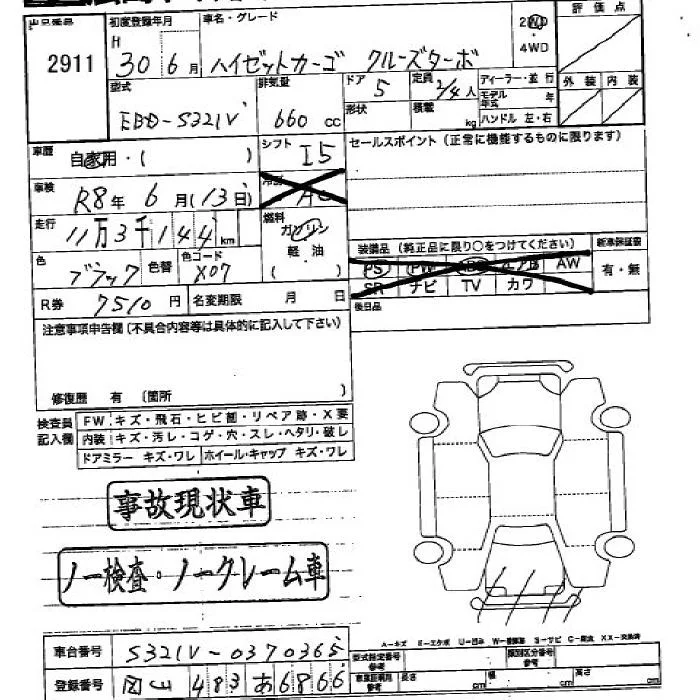 出品番号
2911
初度登録年月
H
30 6月
車名・グレード
ハイゼットカーゴ クルーズターボ
2WD
4WD
評価点
外装 内装
型式
EBD-S321V
排気量
660 cc
ドア
5
定員
2/4人
形状
積載
kg
ディーラー・並行
モデル年式 年
ハンドル 左・右
車歴
自家用・( )
シフト
I5
セールスポイント (正常に機能するものに限ります)
車検
R8年 6月(13日)
冷房
AC
走行
11万3千144km
燃料
ガソリン
軽油
( )
色
ブラック
色替
色コード
X07
装備品 (純正品に限り○をつけてください)
PS PW AB AW
SR ナビ TV カワ
新車保証書
有・無
後日品
R券
7510円
名変期限 月 日
注意事項申告欄(不具合内容等は具体的に記入して下さい)
修復歴 有 (箇所 )
検査員記入欄
FW キズ・飛石・ヒビ割・リペア跡・X要
内装 キズ・汚レ・コゲ・穴・スレ・ヘタリ・破レ
ドアミラー キズ・ワレ ホイール・キャップ キズ・ワレ
事故現状車
ノー検査・ノークレーム車
車台番号
S321V-0370365
登録番号
岡山 483 あ 6866
型式指定番号
参考
類別区分番号
参考
長さ cm
幅 cm
高さ cm